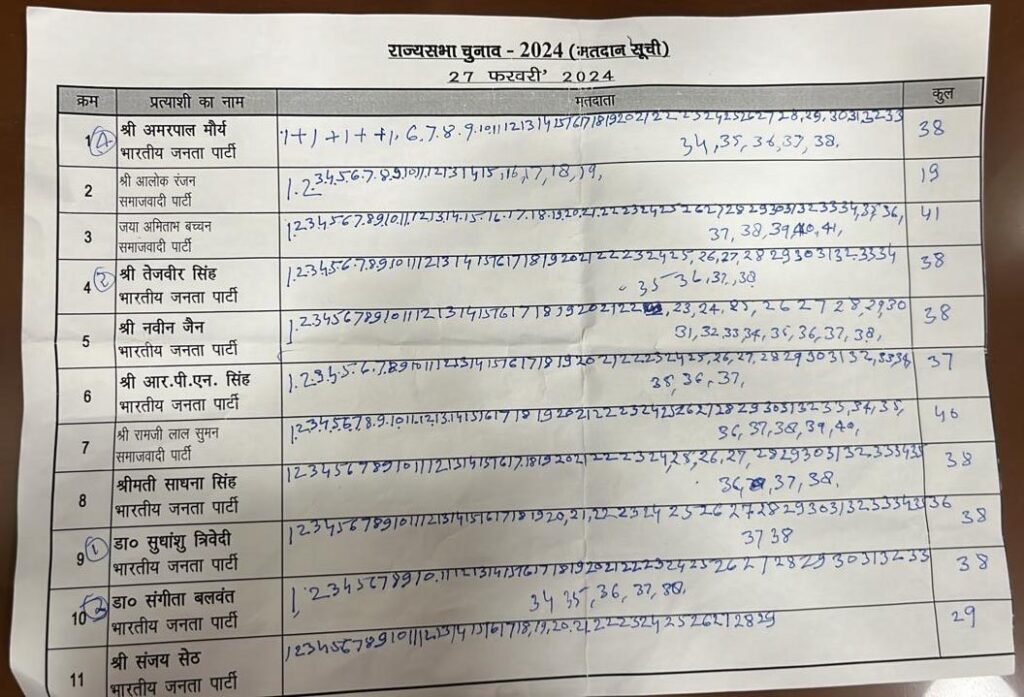 राज्यसभा चुनाव - 2024 (मतदान सूची)
27 फरवरी' 2024
क्रम प्रत्याशी का नाम मतदाता कुल
1 (4) श्री अमरपाल मौर्य 1+1+1++1. 6.7.8.9.10.11.12.13.14.15.16.17.18.19.20.21.22.23.24.25.26.27.28,29,30 31,32 33 38
भारतीय जनता पार्टी 34,35,36,37,38.
2 श्री आलोक रंजन 1.2.3.4.5.6.7.8.9.10.11.12.13.14.15,16,17,18,19, 19
समाजवादी पार्टी
3 जया अमिताभ बच्चन 1.2.3.4.5.6.7.8.9.10.11.12.13.14.15.16.17.18.19.20.21.22 23 24 25 26 27 28 29 30 31 32 33 34,35 36, 41
समाजवादी पार्टी 37, 38, 39,40, 41,
4 (2) श्री तेजवीर सिंह 1.2.3.4.5.6.7.8.9.10.11.12.13.14.15.16.17.18.19.20.21 22 23 24 25, 26,27, 28 29 30 31 32.33 34 38
भारतीय जनता पार्टी 35 36,37,38
5 श्री नवीन जैन 1.2 3 4 5 6 7 8 9 10 11 12 13 14 15 16 17 18 19 20 21 22 23, 24, 25, 26 27 28, 29,30 38
भारतीय जनता पार्टी 31, 32 33,34, 35, 36, 37, 38,
6 श्री आर.पी.एन. सिंह 1.2.3.4.5.6.7.8.9.10.11.12.13.14.15.16.17.18 19 20 21 22 23 24 25,26,27, 28 29 30 31 32, 33 34 37
भारतीय जनता पार्टी 35, 36, 37,
7 श्री रामजी लाल सुमन 1.2.3.4.5.6.7.8.9.10.11.12.13.14.15.16.17.18 19 20 21 22 23 24 25 26 27 28 29 30 31 32 33, 34, 35, 40
समाजवादी पार्टी 36, 37, 38, 39, 40,
8 श्रीमती साधना सिंह 1 2 3 4 5 6 7 8 9 10 11 12 13 14 15 16 17.18 19 20 21 22 23 24,25, 26, 27, 28 29 30 31 32.33 34 35 38
भारतीय जनता पार्टी 36, 37, 38.
9 (1) डा० सुधांशु त्रिवेदी 1 2 3 4 5 6 7 8 9 10 11 12 13 14 15 16 17 18 19 20, 21, 22 23 24 25 26 27 28 29 30 31 32 33 34 35 36 38
भारतीय जनता पार्टी 37 38
10 (3) डा० संगीता बलवंत 1, 2 3 4 5 6 7 8 9 10.11 12 13 14 15 16 17 18 19 20 21 22 23 24 25 26 27 28 29 30 31 32 33 38
भारतीय जनता पार्टी 34 35, 36, 37, 38.
11 श्री संजय सेठ 1 2 3 4 5 6 7 8 9 10 11 12 13 14 15 16 17 18, 19, 20.21 22 23 24 25 26 27 28 29 29
भारतीय जनता पार्टी